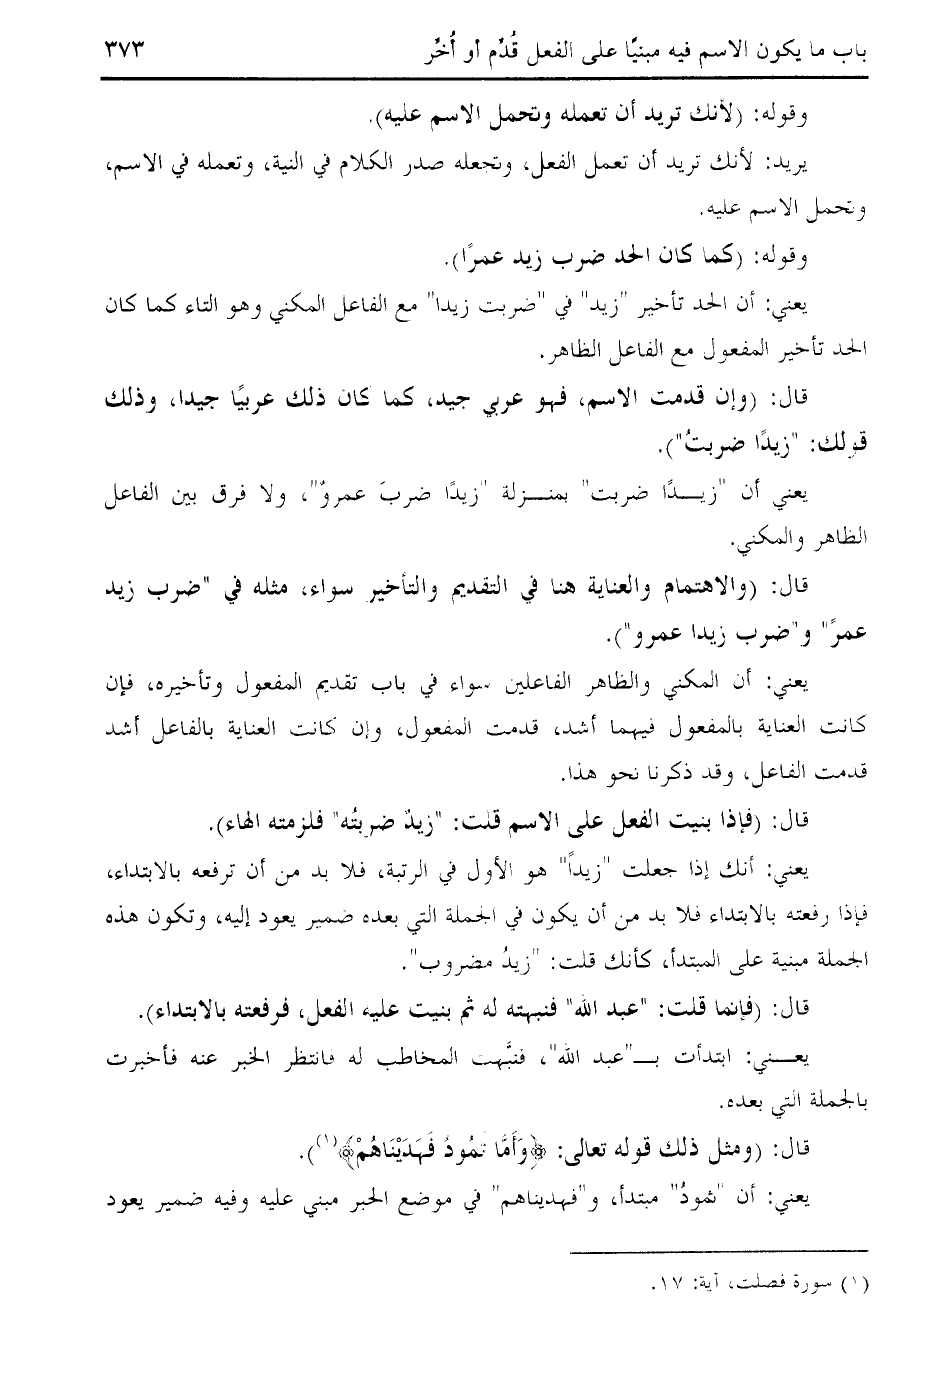 باب ما يكون الاسم فيه مبنيًا على الفعل قُدِّم أو أُخِّر ٣٧٣
وقوله: (لأنك تريد أن تعمله وتحمل الاسم عليه).
يريد: لأنك تريد أن تعمل الفعل، وتجعله صدر الكلام في النية، وتعمله في الاسم،
وتحمل الاسم عليه.
وقوله: (كما كان الحد ضرب زيد عمرًا).
يعني: أن الحد تأخير "زيد" في "ضربت زيدا" مع الفاعل المكني وهو التاء كما كان
الحد تأخير المفعول مع الفاعل الظاهر.
قال: (وإن قدمت الاسم، فهو عربي جيد، كما كان ذلك عربيًا جيدا، وذلك
قولك: "زيدًا ضربتُ").
يعني أن "زيـــدًا ضربت" بمنـــزلة "زيدًا ضربَ عمروٌ"، ولا فرق بين الفاعل
الظاهر والمكني.
قال: (والاهتمام والعناية هنا في التقديم والتأخير سواء، مثله في "ضرب زيد
عمرً" و"ضرب زيدا عمرو").
يعني: أن المكني والظاهر الفاعلين سواء في باب تقديم المفعول وتأخيره، فإن
كانت العناية بالمفعول فيهما أشد، قدمت المفعول، وإن كانت العناية بالفاعل أشد
قدمت الفاعل، وقد ذكرنا نحو هذا.
قال: (فإذا بنيت الفعل على الاسم قلت: "زيدٌ ضربتُه" فلزمته الهاء).
يعني: أنك إذا جعلت "زيداً" هو الأول في الرتبة، فلا بد من أن ترفعه بالابتداء،
فإذا رفعته بالابتداء فلا بد من أن يكون في الجملة التي بعده ضمير يعود إليه، وتكون هذه
الجملة مبنية على المبتدأ، كأنك قلت: "زيدُ مضروب".
قال: (فإنما قلت: "عبد الله" فنبهته له ثم بنيت عليه الفعل، فرفعته بالابتداء).
يعـــني: ابتدأت بــ"عبد الله"، فنبَّهت المخاطب له فانتظر الخبر عنه فأخبرت
بالجملة التي بعده.
قال: (ومثل ذلك قوله تعالى: ﴿وَأَمَّا ثَمُودُ فَهَدَيْنَاهُمْ﴾(١)).
يعني: أن "ثمودُ" مبتدأ، و"فهديناهم" في موضع الخبر مبني عليه وفيه ضمير يعود
(١) سورة فصلت، آية: ١٧.